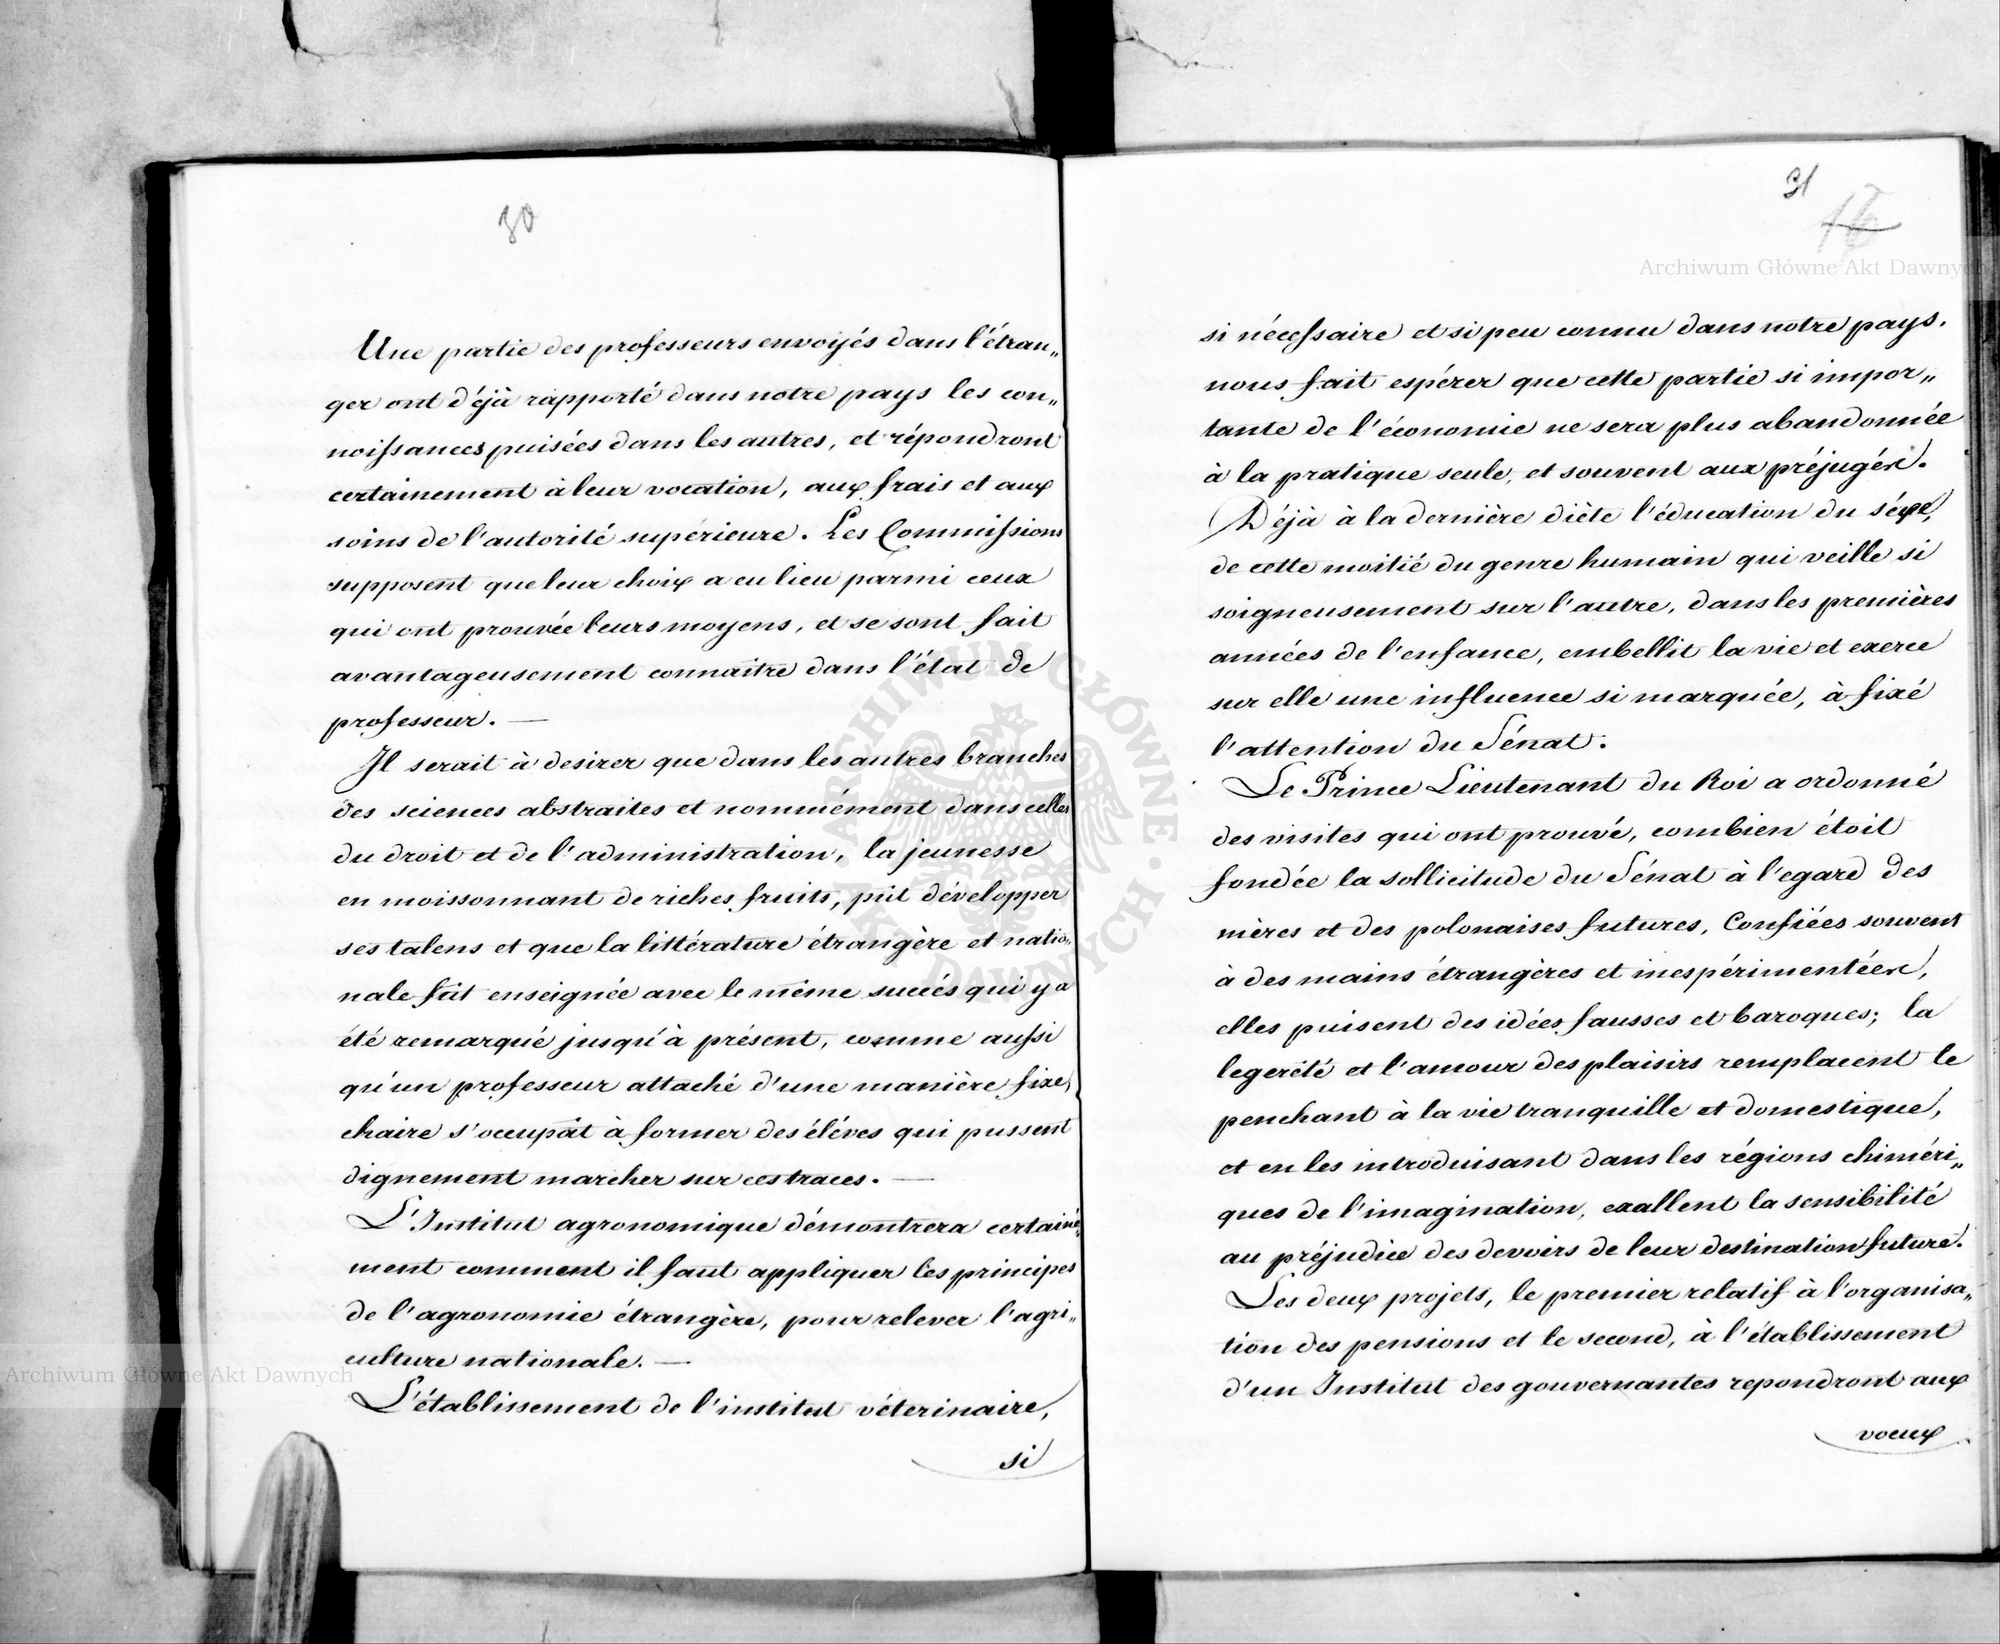 30
Une partie des professeurs envoyés dans l'étran„
ger ont déjà rapporté dans notre pays les con„
noissances puisées dans les autres, et répondront
certainement à leur vocation, aux frais et aux
soins de l'autorité supérieure. Les Commissions
supposent que leur choix a eu lieu parmi ceux
qui ont prouvée leurs moyens, et se sont fait
avantageusement connaitre dans l'état de
professeur. —
Il serait à desirer que dans les autres branches
des sciences abstraites et nommément dans celles
du droit et de l'administration, la jeunesse
en moissonnant de riches fruits, pût développer
ses talens et que la littérature étrangère et natio„
nale fût enseignée avec le même succés qui y a
été remarqué jusqu'à présent, comme aussi
qu'un professeur attaché d'une manière fixe,
chaire s'occupât à former des éléves qui pussent
dignement marcher sur ces traces. —
L'Institut agronomique démontrera certaine„
ment comment il faut appliquer les principes
de l'agronomie étrangère, pour relever l'agri„
culture nationale. —
L'établissement de l'institut véterinaire,
si
31
16
si nécessaire et si peu connu dans notre pays.
nous fait espérer que cette partie si impor„
tante de l'économie ne sera plus abandonnée
à la pratique seule, et souvent aux préjugés.
Déjà à la dernière diète l'éducation du séxe,
de cette moitié du genre humain qui veille si
soigneusement sur l'autre, dans les premières
années de l'enfance, embellit la vie et exerce
sur elle une influence si marquée, à fixé
l'attention du Sénat.
Le Prince Lieutenant du Roi a ordonné
des visites qui ont prouvé, combien étoit
fondée la sollicitude du Sénat à l'egard des
mères et des polonaises futures. Confiées souvent
à des mains étrangères et inespérimentées,
elles puisent des idées fausses et baroques; la
legereté et l'amour des plaisirs remplacent le
penchant à la vie tranquille et domestique,
et en les introduisant dans les régions chiméri„
ques de l'imagination, exallent la sensibilité
au préjudice des devoirs de leur destination future.
Les deux projets, le premier relatif à l'organisa„
tion des pensions et le second, à l'établissement
d'un Institut des gouvernantes repondront aux
voeux
Archiwum Główne Akt Dawnych
Archiwum Główne Akt Dawnych
ARCHIWUM GŁÓWNE AKT DAWNYCH